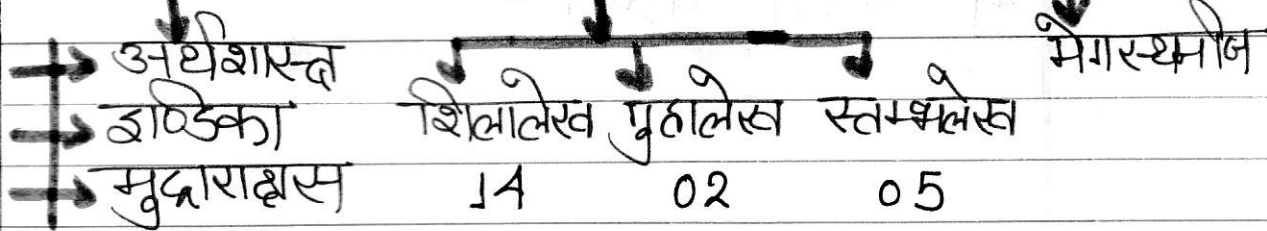 अर्थशास्त्र मेगस्थनीज
इण्डिका शिलालेख गुहालेख स्तम्भलेख
मुद्राराक्षस 14 02 05